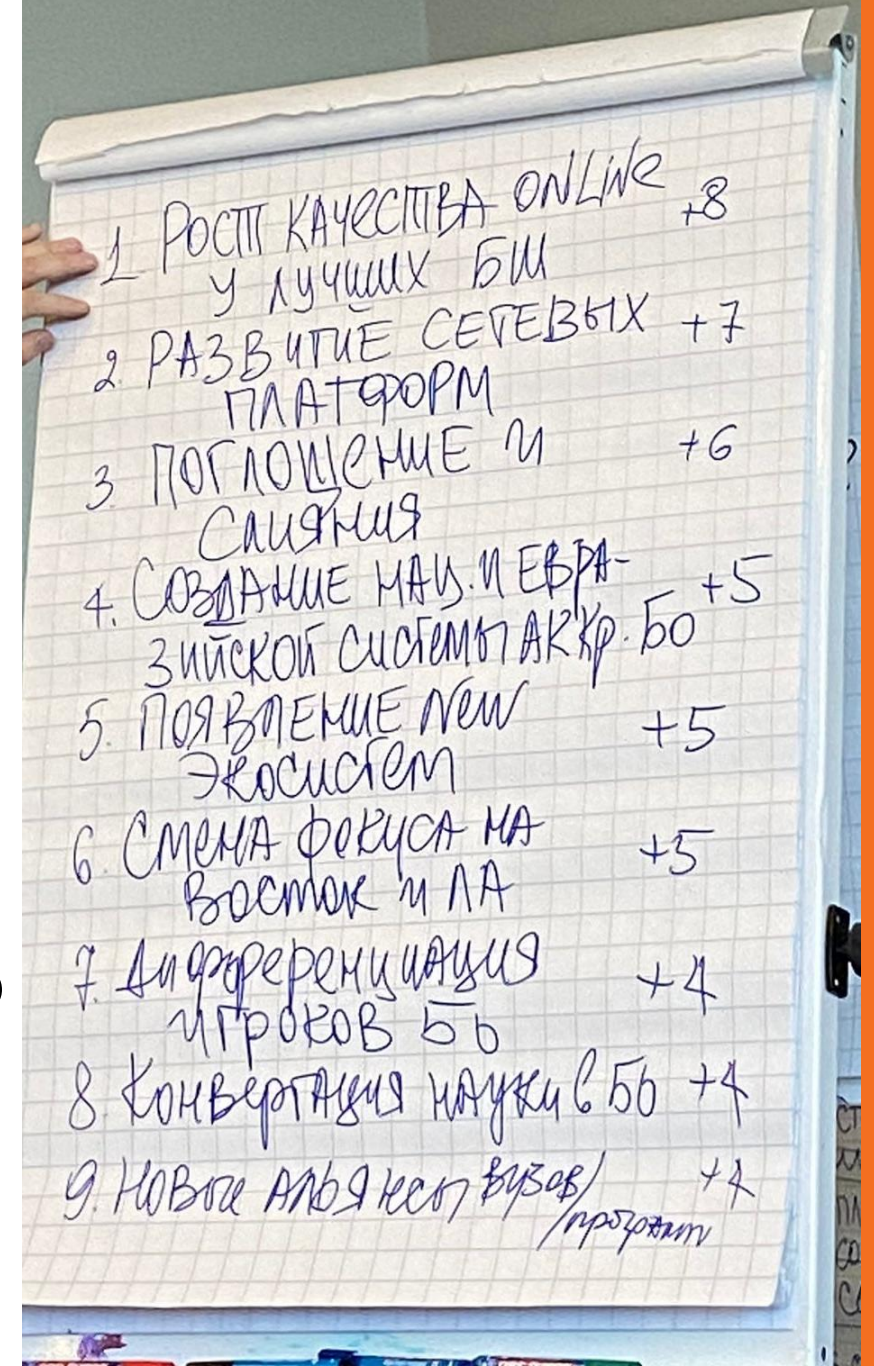 1 РОСТ КАЧЕСТВА ONLINE +8
У ЛУЧШИХ БШ
2. РАЗВИТИЕ СЕТЕВЫХ +7
ПЛАТФОРМ
3. ПОГЛОЩЕНИЕ И +6
СЛИЯНИЯ
4. СОЗДАНИЕ НАЦ. И ЕВРА- +5
ЗИЙСКОЙ СИСТЕМЫ АККР. БО
5. ПОЯВЛЕНИЕ NEW +5
ЭКОСИСТЕМ
6. СМЕНА ФОКУСА НА +5
ВОСТОК И ЛА
7. ДИФФЕРЕНЦИАЦИЯ +4
ИГРОКОВ БО
8. КОНВЕРТАЦИЯ НАУКИ В БО +4
9. НОВЫЕ АЛЬЯНСЫ ВУЗОВ/ +4
/программ